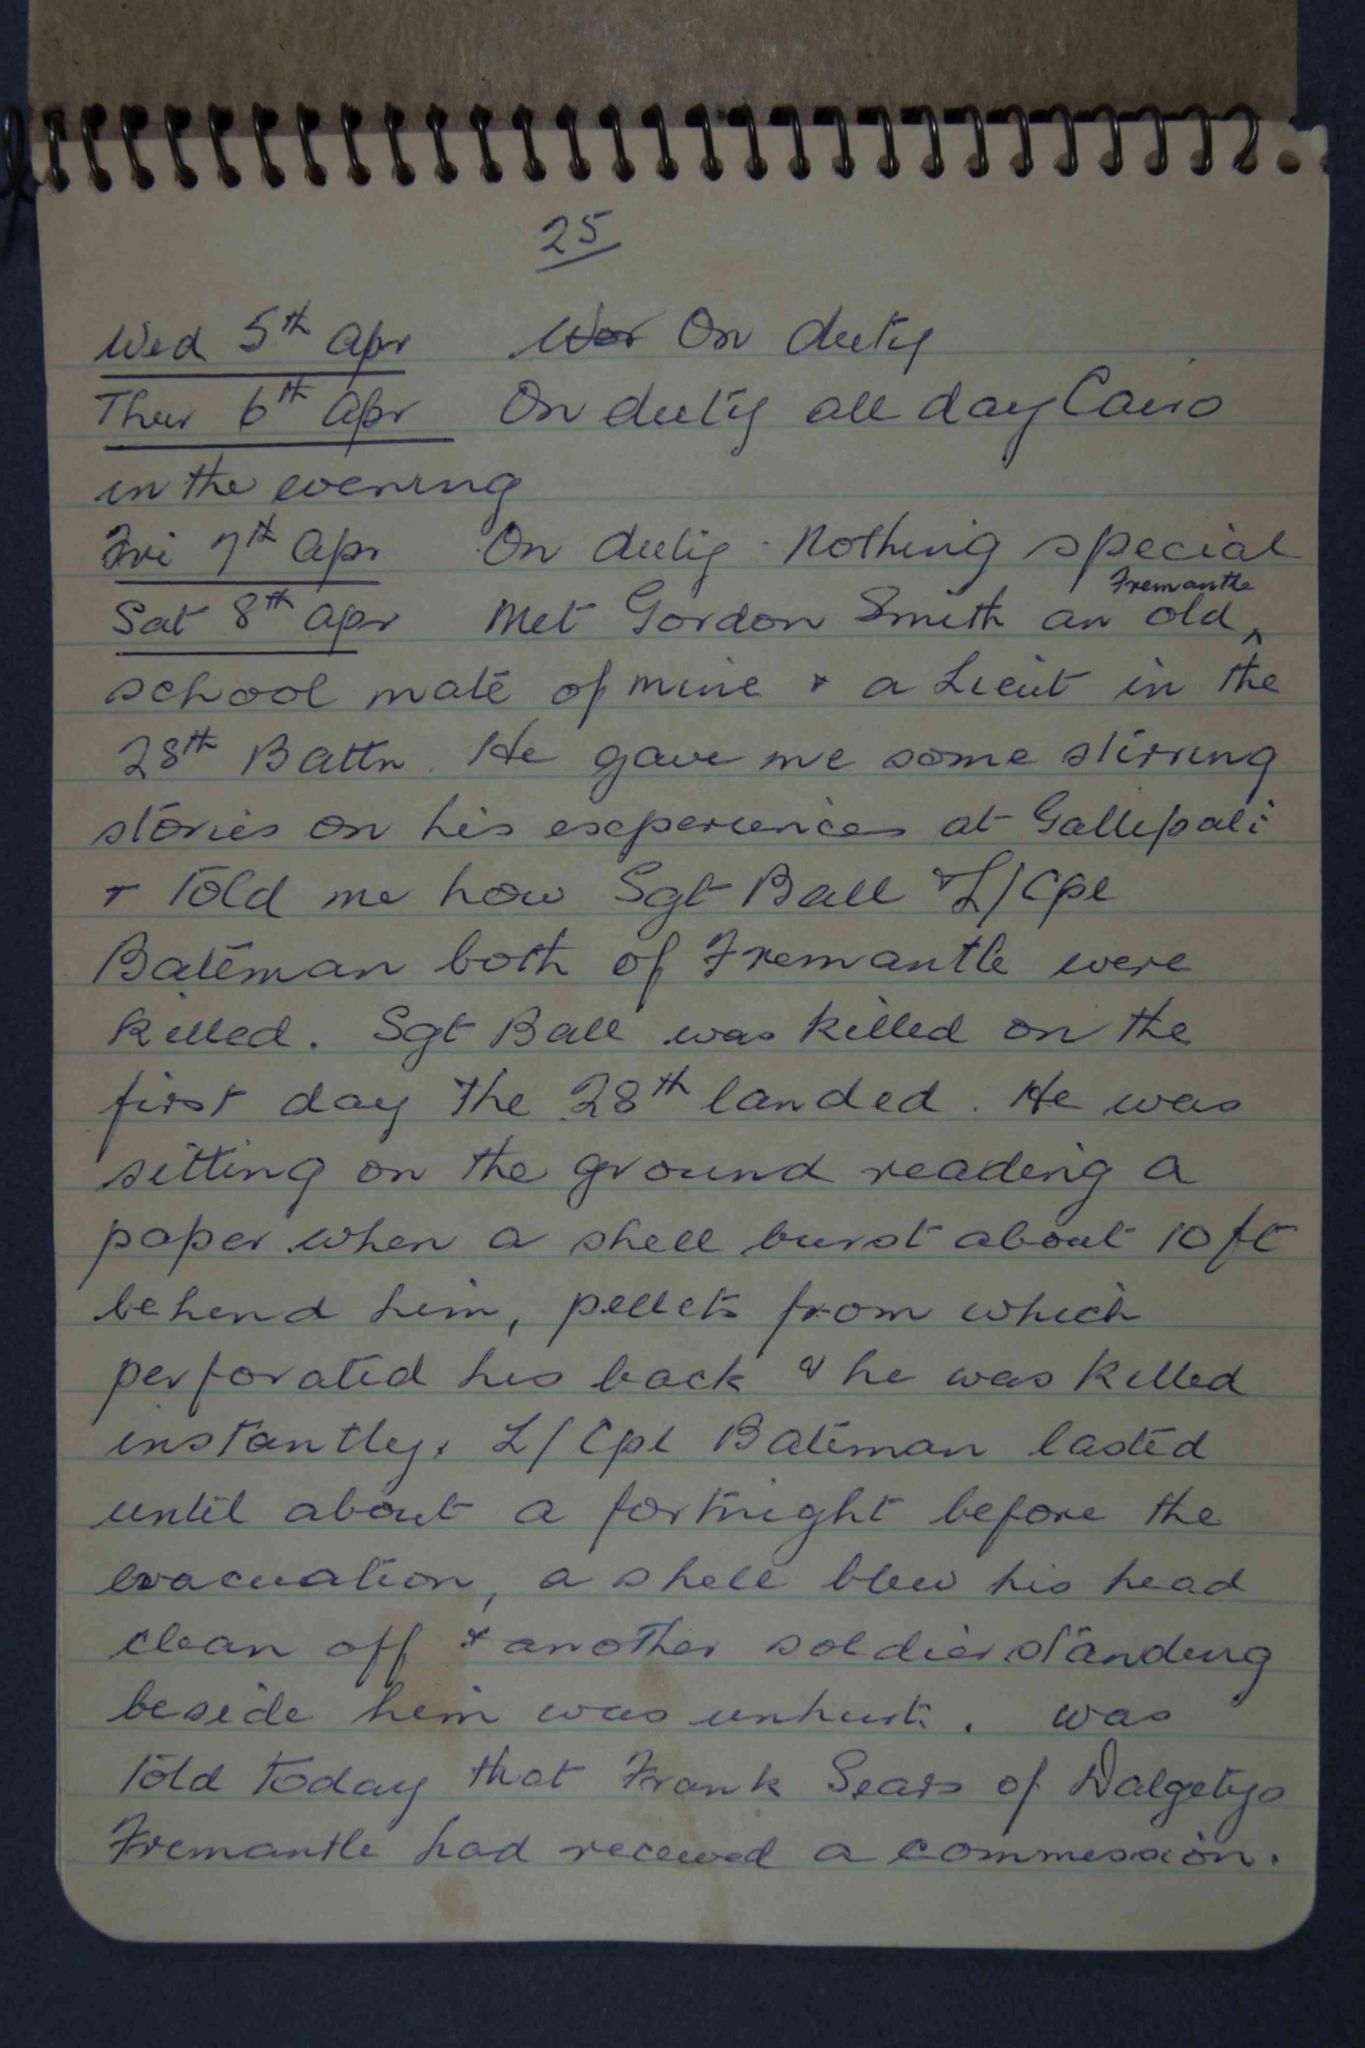 25
Wed 5th Apr Wor On duty
Thur 6th Apr On duty all day Cairo
in the evening
Fri 7th Apr On duty. Nothing special
Sat 8th Apr Met Gordon Smith an old ^ Fremantle
school mate of mine & a Lieut in the
28th Battn. He gave me some stirring
stories on his experiences at Gallipali
& Told me how Sgt Ball & L/Cpl
Bateman both of Fremantle were
killed. Sgt Ball was killed on the
first day the 28th landed. He was
sitting on the ground reading a
paper when a shell burst about 10 ft
behind him, pellets from which
perforated his back & he was killed
instantly. L/Cpl Bateman lasted
until about a fortnight before the
evacuation, a shell blew his head
clean off & another soldier standing
beside him was unhurt. was
told today that Frank Sears of Dalgetys
Fremantle had received a commission.